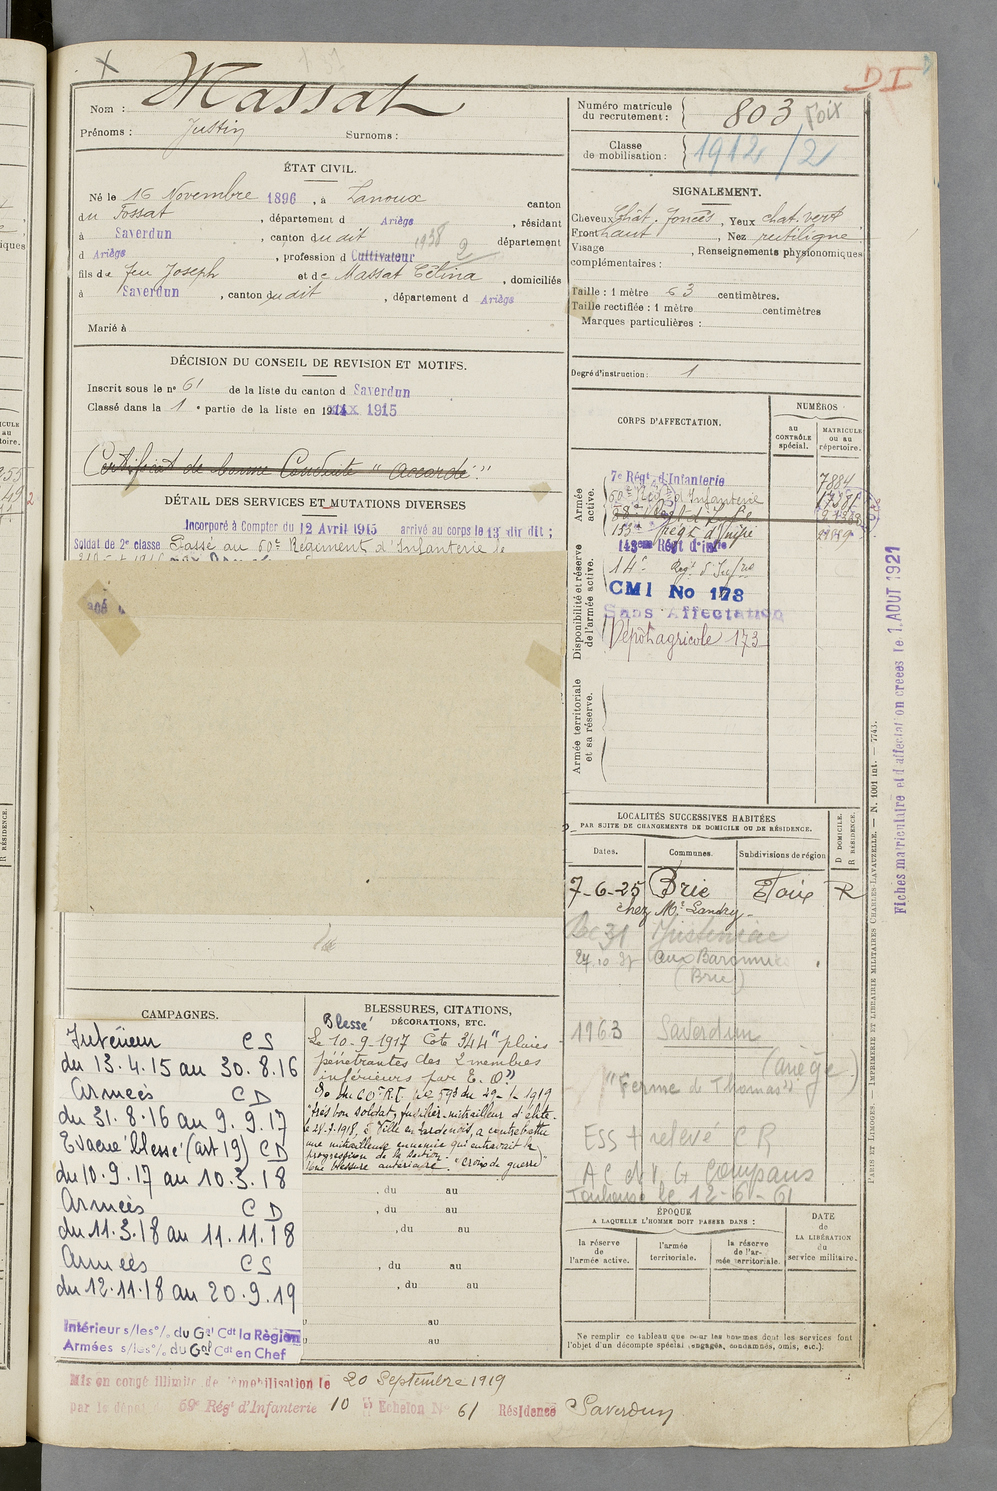 Massat
Nom :
Prénoms : Justin Surnoms :
ÉTAT CIVIL.
Né le 16 Novembre 1896, à Lanoux canton
du Fossat, département d Ariège, résidant
à Saverdun, canton du dit 1938 2 département
d Ariège, profession d Cultivateur
fils de feu Joseph et de Massat Célina, domiciliés
à Saverdun, canton du dit, département d Ariège
Marié à
DÉCISION DU CONSEIL DE REVISION ET MOTIFS.
Inscrit sous le n° 61 de la liste du canton d Saverdun
Classé dans la 1e partie de la liste en 1915
Certificat de bonne Conduite "Accordé."
DÉTAIL DES SERVICES ET MUTATIONS DIVERSES
Incorporé à Compter du 12 Avril 1915 arrivé au corps le 13 dit dit ;
Soldat de 2e classe Passé au 50e Régiment d'Infanterie le
CAMPAGNES.
Intérieur CS
du 13.4.15 au 30.8.16
Armées CD
du 31.8.16 au 9.9.17
Evacué blessé (art 19) CD
du 10.9.17 au 10.3.18
Armées CD
du 11.3.18 au 11.11.18
Armées CS
du 12.11.18 au 20.9.19
Intérieur s/les °/. du Gal Cdt la Région
Armées s/les °/. du Gal Cdt en Chef
BLESSURES, CITATIONS,
DÉCORATIONS, ETC.
Blessé
Le 10-9-1917 Côte 344 "plaies
pénétrantes des 2 membres
inférieurs par E. O"
du 29-1-1919
"très bon soldat, fusilier-mitrailleur d'élite.
le 28.9.1918, à Ville en Tardenois, a contrebattu
une mitrailleuse ennemie qui entravait la
progression de la section.
Une blessure antérieure." Croix de guerre
, du au
, du au
, du au
, du au
, du au
au
au
Mis en congé illimité de démobilisation le 20 Septembre 1919
par le dépôt 59e Régt d'Infanterie 10 Echelon N° 61 Résidence Saverdun
DI
Numéro matricule
du recrutement : 803 Foix
Classe
de mobilisation : 1912/2
SIGNALEMENT.
Cheveux Chât. foncés, Yeux chat. vert
Front haut, Nez rectiligne
Visage , Renseignements physionomiques
complémentaires :
Taille : 1 mètre 63 centimètres.
Taille rectifiée : 1 mètre centimètres
Marques particulières :
Degré d'instruction : 1
CORPS D'AFFECTATION.
NUMÉROS
au
CONTRÔLE
spécial.
MATRICULE
ou au
répertoire.
Armée
active.
7e Régt. d'Infanterie 7884
50e Régt d'Infanterie
153e Régt d'Infie
Disponibilité et réserve
de l'armée active.
143eme Régt d'infie
14e Regt d'Infie
CMI No 178
Sans Affectation
Dépôt agricole 173
Armée territoriale
et sa réserve.
LOCALITÉS SUCCESSIVES HABITÉES
PAR SUITE DE CHANGEMENTS DE DOMICILE OU DE RÉSIDENCE.
Dates. Communes. Subdivisions de région
D DOMICILE.
R RÉSIDENCE.
7-6-25 Brie Foix R
chez Mr Landry
Dec 31 Justiniac
27.10.37 aux Baronnies
(Brie)
1963 Saverdun
(Ariège)
"Ferme de Thomas"
ESS + relevé CR
AC Compans
Toulouse le 12-6-61
ÉPOQUE
A LAQUELLE L'HOMME DOIT PASSER DANS :
la réserve
de
l'armée active.
l'armée
territoriale.
la réserve
de l'ar-
mée territoriale.
DATE
de
LA LIBÉRATION
du
service militaire.
Ne remplir ce tableau que pour les hommes dont les services font
l'objet d'un décompte spécial (engagés, condamnés, omis, etc.).
PARIS ET LIMOGES. — IMPRIMERIE ET LIBRAIRIE MILITAIRES CHARLES-LAVAUZELLE. — N. 1001 int. — 7743.
Fiches matriculaire et d'affectation créées le 1 AOUT 1921